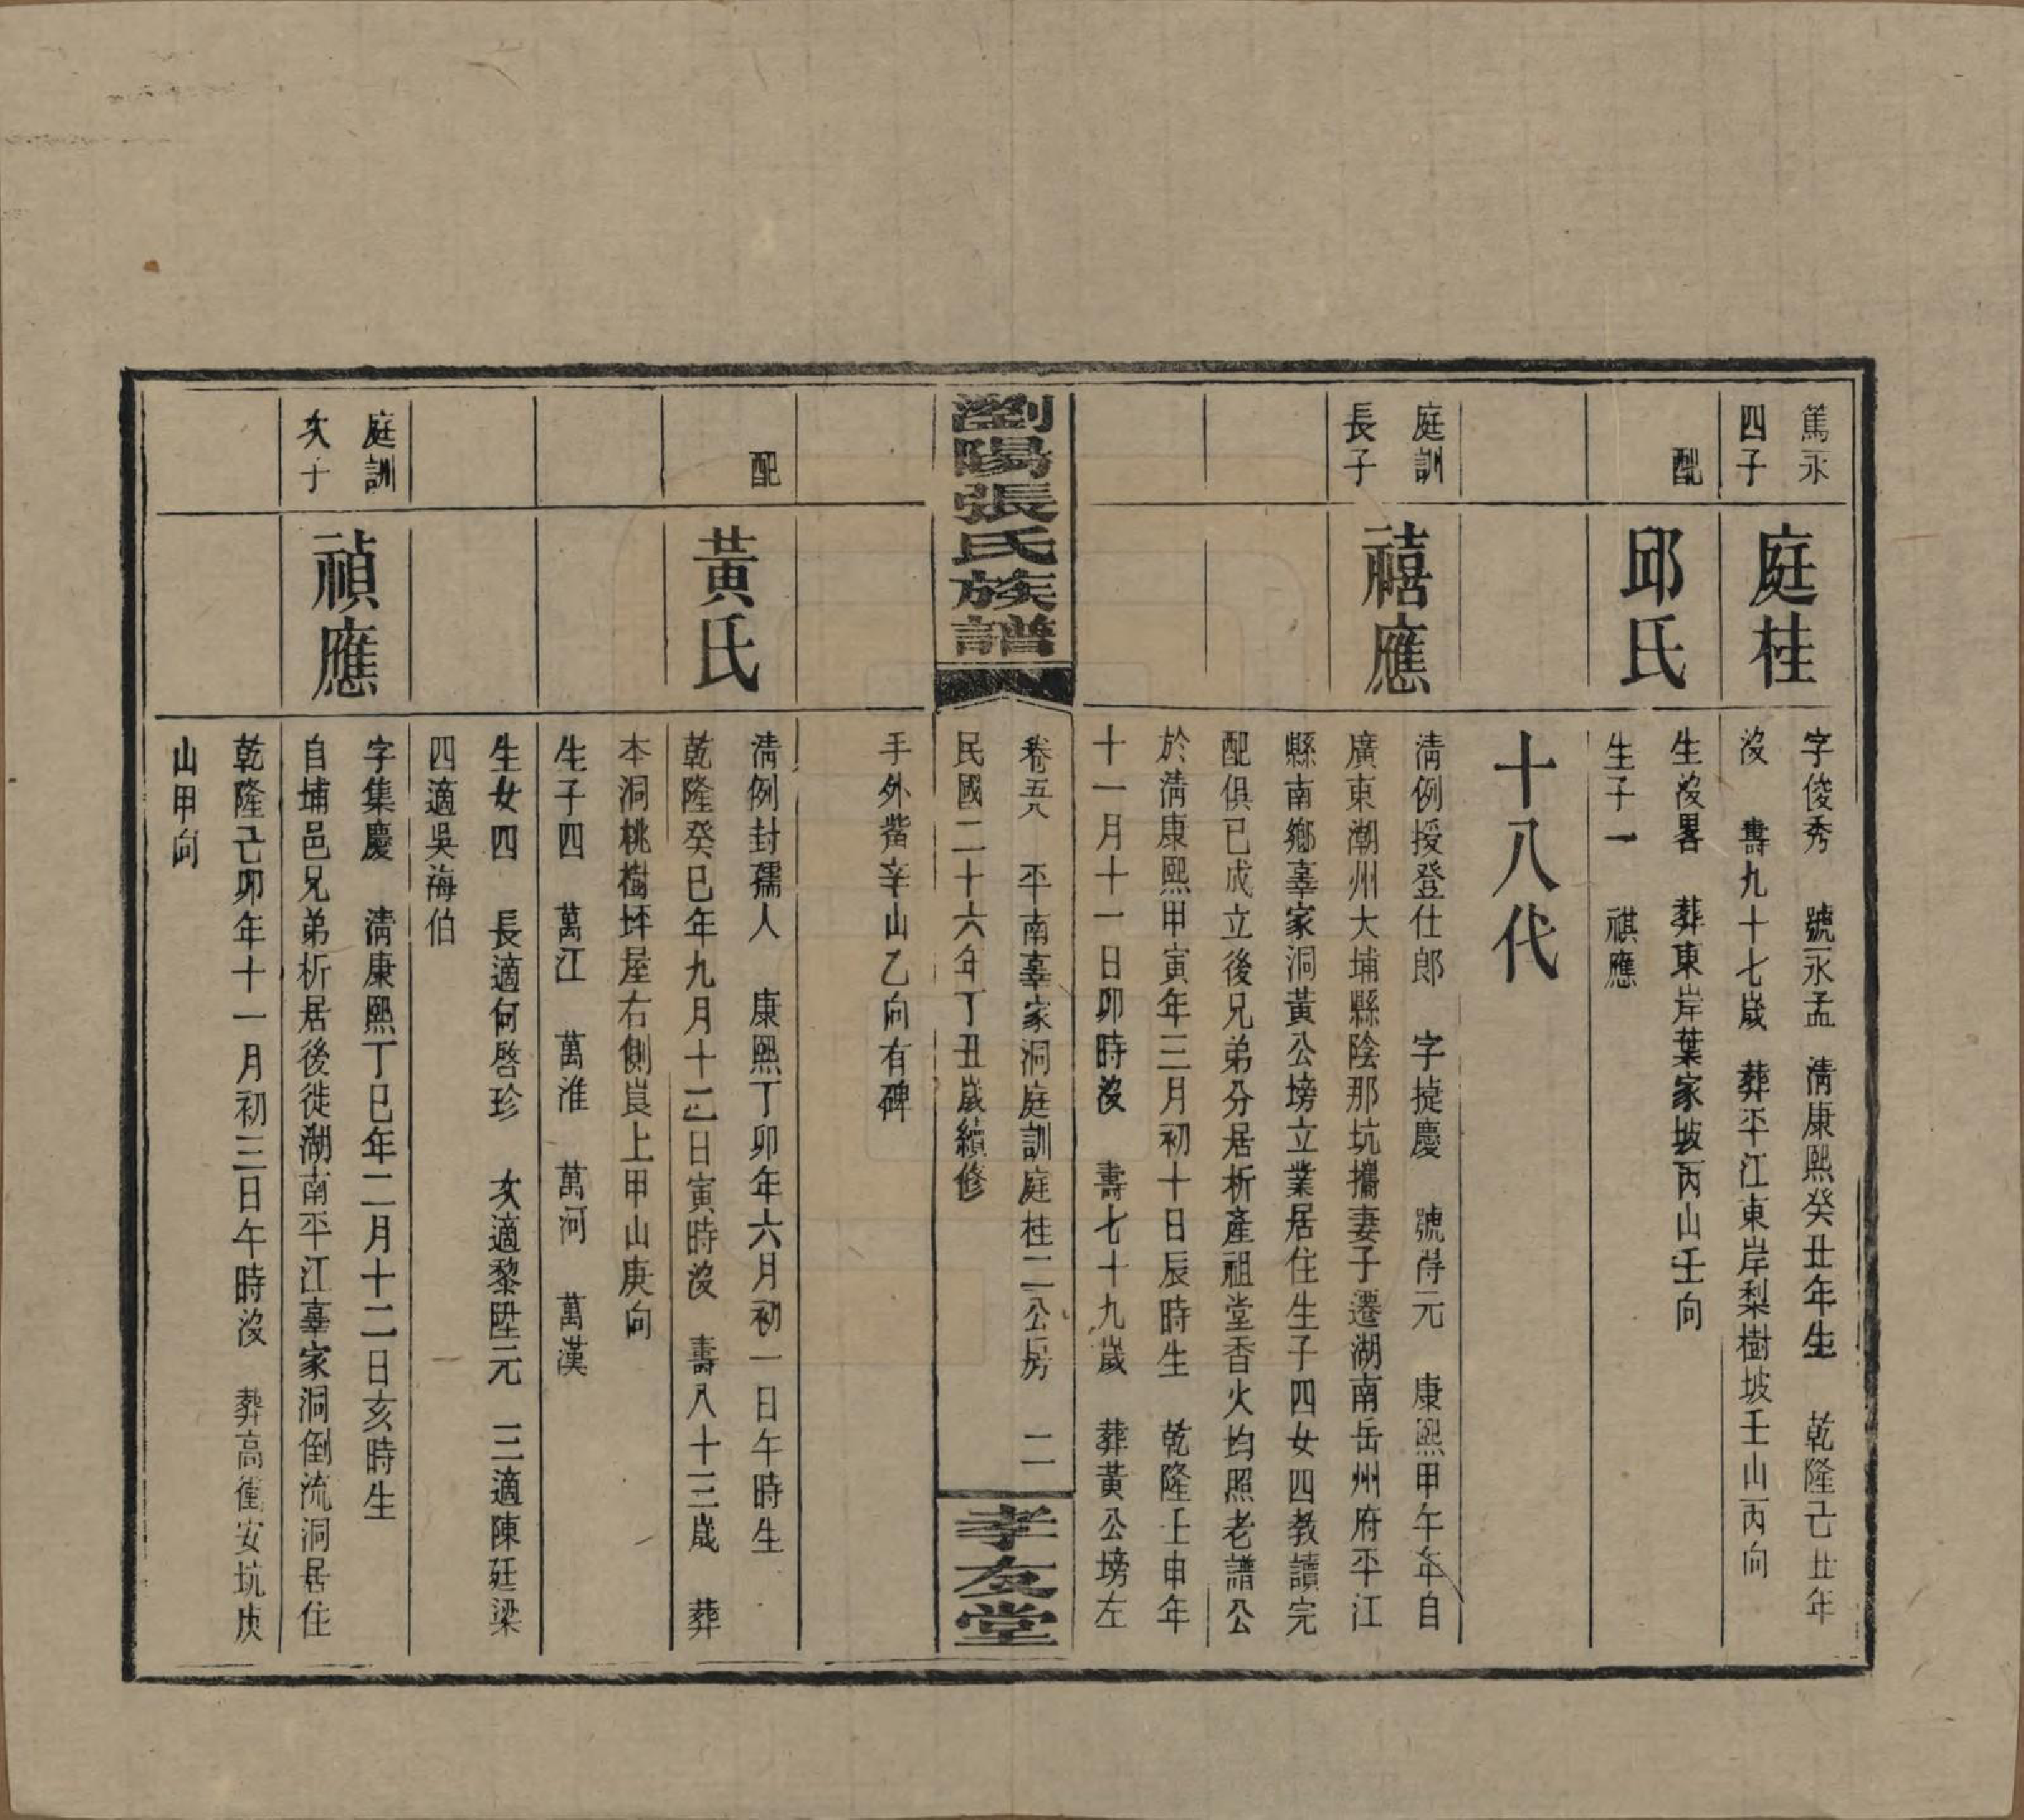 篤永
四子
庭桂
字俊秀　號永孟　清康熙癸丑年生　乾隆己丑年
沒　壽九十七歲　葬平江東岸梨樹坡壬山丙向
配
邱氏
生沒畧　葬東岸葉家坡丙山壬向
生子一　祺應
十八代
庭訓
長子
禧應
清例授登仕郎　字㨗慶　號得元　康熙甲午年自
廣東潮州大埔縣陰那坑攜妻子遷湖南岳州府平江
縣南鄉辜家洞黃公塝立業居住生子四女四教讀完
配俱已成立後兄弟分居析產祖堂香火均照老譜公
於清康熙甲寅年三月初十日辰時生　乾隆壬申年
十一月十一日卯時沒　壽七十九歲　葬黃公塝左
瀏陽張氏族譜
卷五八　平南辜家洞庭訓庭桂二公房　二
民國二十六年丁丑歲續修
孝友堂
手外觜辛山乙向有碑
配
黃氏
清例封孺人　康熙丁卯年六月初一日午時生
乾隆癸巳年九月十二日寅時沒　壽八十三歲　葬
本洞桃樹坪屋右側崀上甲山庚向
生子四　萬江　萬淮　萬河　萬漢
生女四　長適何啓珍　次適黎陞元　三適陳廷梁
四適吳海伯
庭訓
次子
禎應
字集慶　清康熙丁巳年二月十二日亥時生
自埔邑兄弟析居後徙湖南平江辜家洞倒流洞居住
乾隆己卯年十一月初三日午時沒　葬高衝安坑庚
山甲向